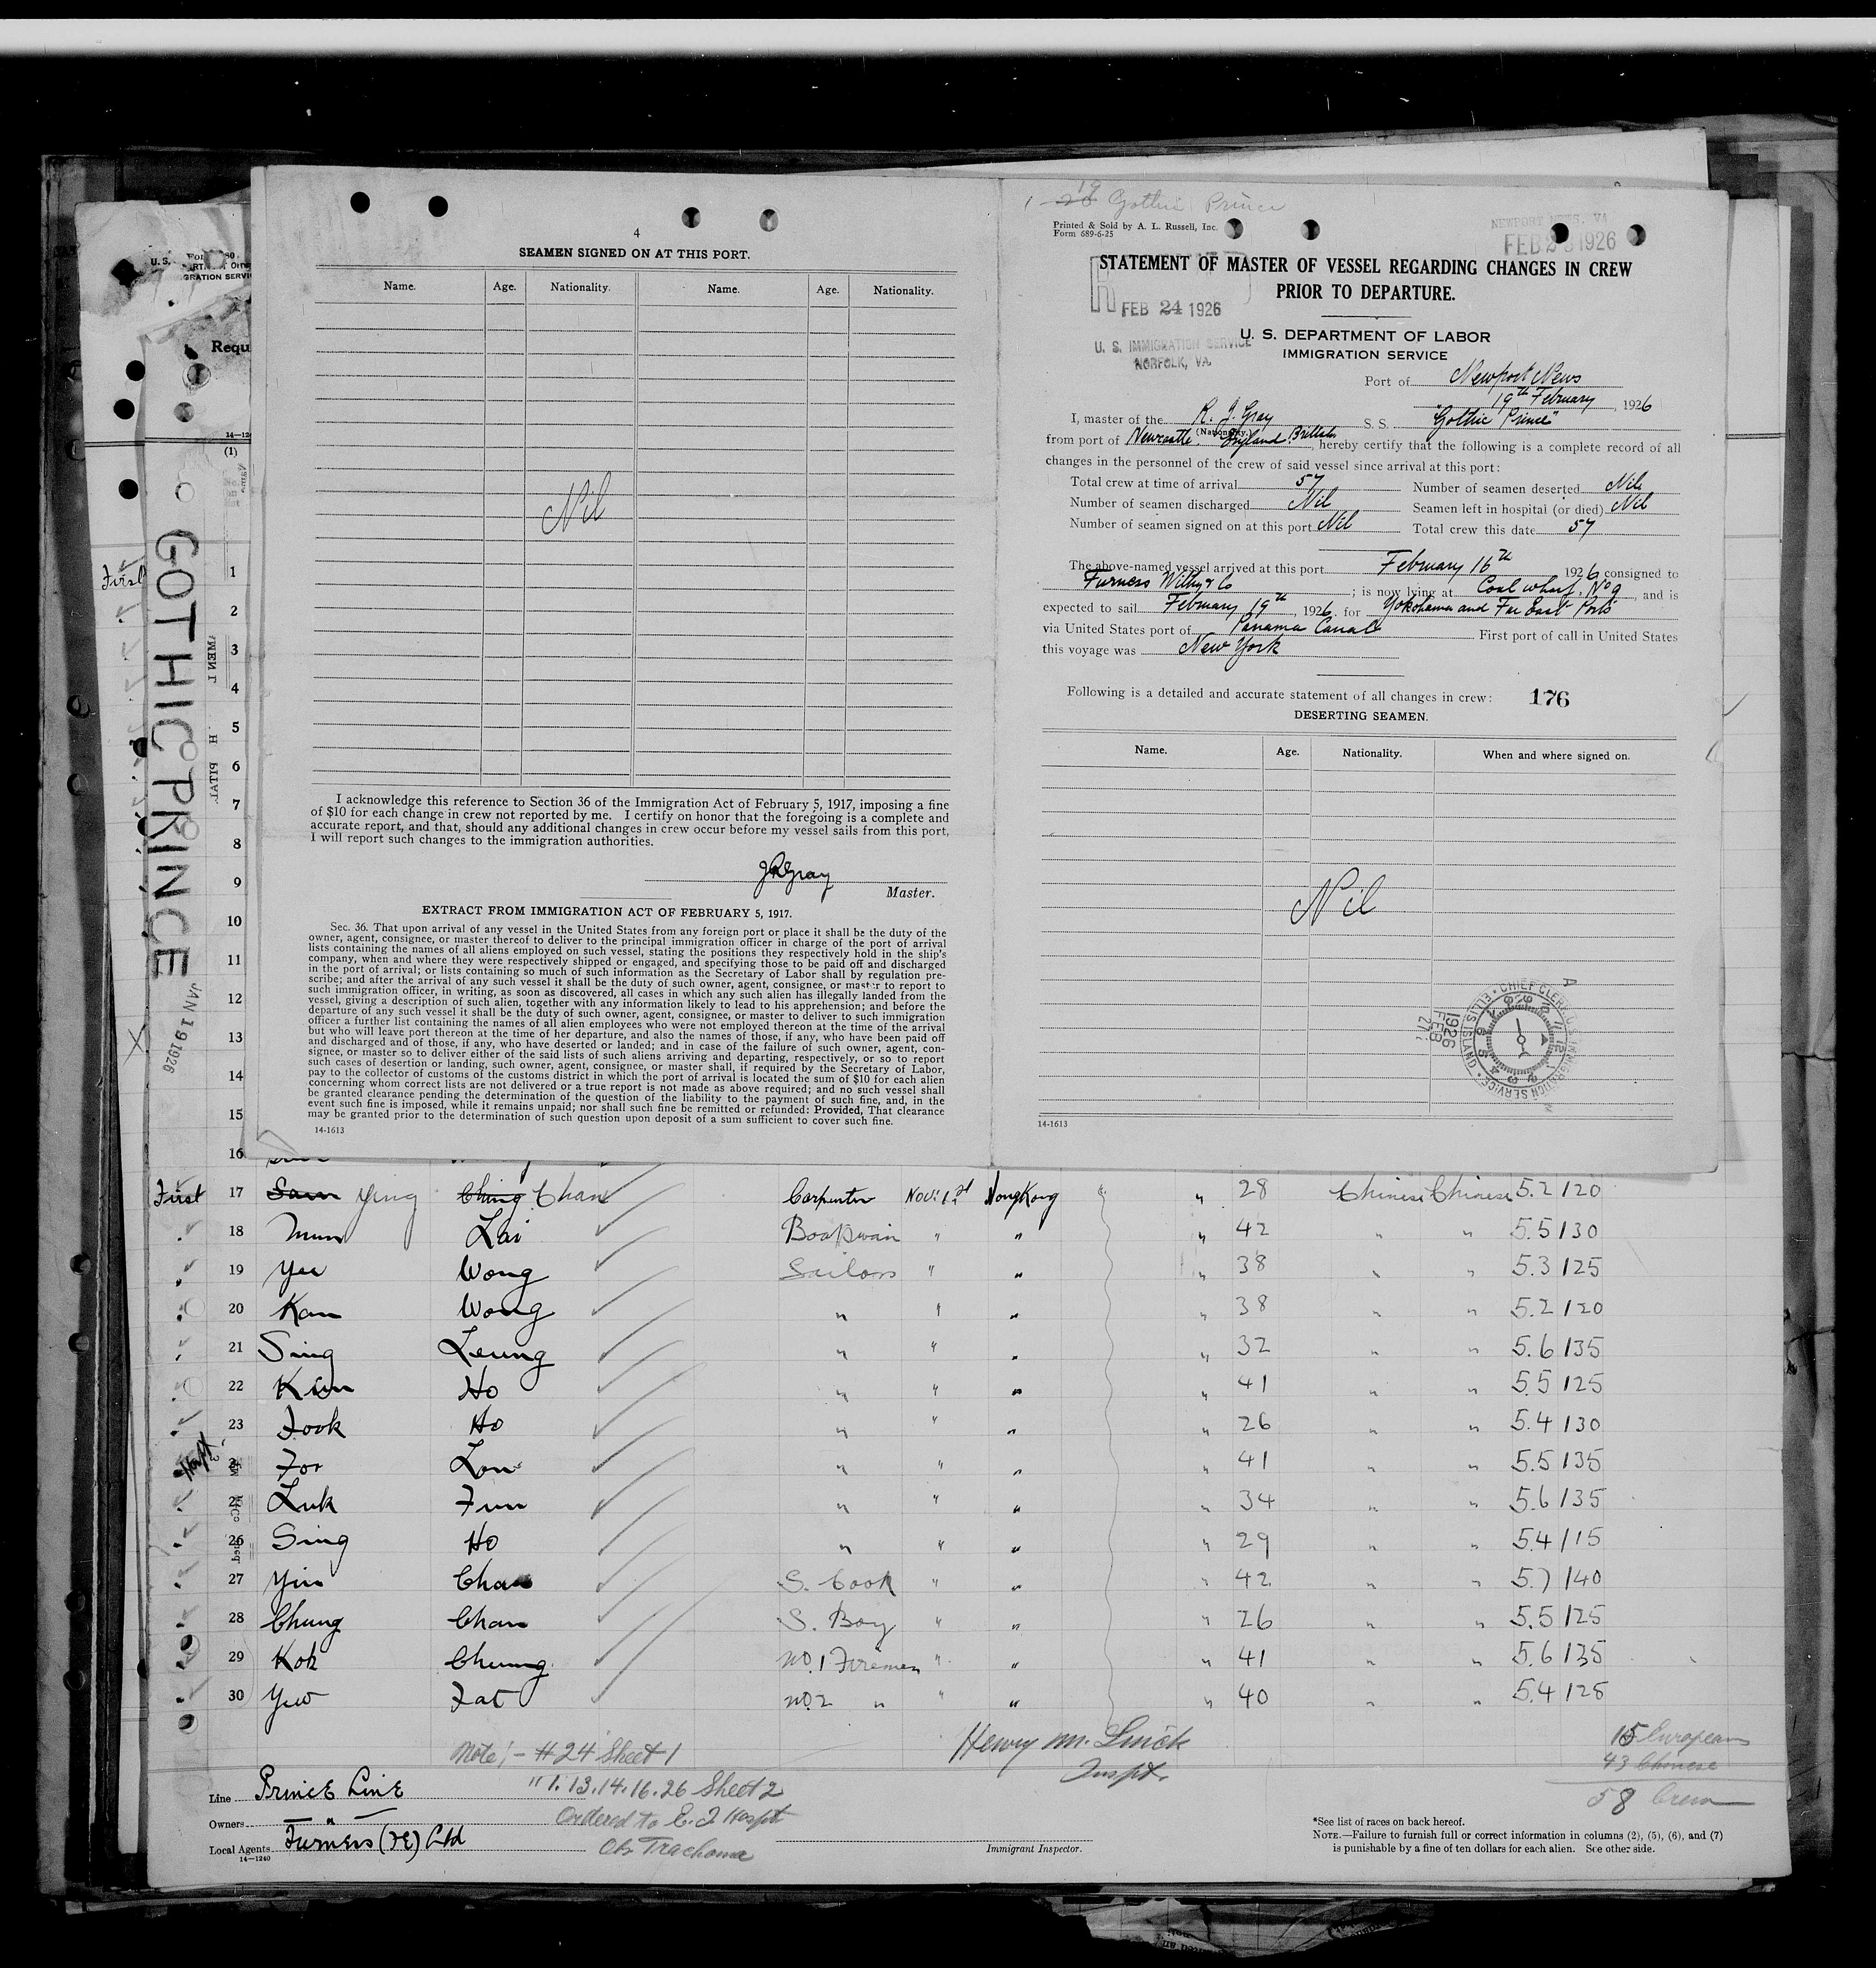 4
SEAMEN SIGNED ON AT THIS PORT.
Name. Age. Nationality. Name. Age. Nationality.
Nil
I acknowledge this reference to Section 36 of the Immigration Act of February 5, 1917, imposing a fine
of $10 for each change in crew not reported by me. I certify on honor that the foregoing is a complete and
accurate report, and that, should any additional changes in crew occur before my vessel sails from this port,
I will report such changes to the immigration authorities.
JRGray
Master.
EXTRACT FROM IMMIGRATION ACT OF FEBRUARY 5, 1917.
Sec. 36. That upon arrival of any vessel in the United States from any foreign port or place it shall be the duty of the
owner, agent, consignee, or master thereof to deliver to the principal immigration officer in charge of the port of arrival
lists containing the names of all aliens employed on such vessel, stating the positions they respectively hold in the ship's
company, when and where they were respectively shipped or engaged, and specifying those to be paid off and discharged
in the port of arrival; or lists containing so much of such information as the Secretary of Labor shall by regulation pre-
scribe; and after the arrival of any such vessel it shall be the duty of such owner, agent, consignee, or master to report to
such immigration officer, in writing, as soon as discovered, all cases in which any such alien has illegally landed from the
vessel, giving a description of such alien, together with any information likely to lead to his apprehension; and before the
departure of any such vessel it shall be the duty of such owner, agent, consignee, or master to deliver to such immigration
officer a further list containing the names of all alien employees who were not employed thereon at the time of the arrival
but who will leave port thereon at the time of her departure, and also the names of those, if any, who have been paid off
and discharged and of those, if any, who have deserted or landed; and in case of the failure of such owner, agent, con-
signee, or master so to deliver either of the said lists of such aliens arriving and departing, respectively, or so to report
such cases of desertion or landing, such owner, agent, consignee, or master shall, if required by the Secretary of Labor,
pay to the collector of customs of the customs district in which the port of arrival is located the sum of $10 for each alien
concerning whom correct lists are not delivered or a true report is not made as above required; and no such vessel shall
be granted clearance pending the determination of the question of the liability to the payment of such fine, and, in the
event such fine is imposed, while it remains unpaid; nor shall such fine be remitted or refunded: Provided, That clearance
may be granted prior to the determination of such question upon deposit of a sum sufficient to cover such fine.
14-1613
19
Gothic Prince
Printed & Sold by A. L. Russell, Inc.
Form 689-6-25
NEWPORT NEWS, VA
FEB 2 1926
STATEMENT OF MASTER OF VESSEL REGARDING CHANGES IN CREW
PRIOR TO DEPARTURE.
FEB 24 1926
U. S. IMMIGRATION SERVICE
NORFOLK, VA.
U. S. DEPARTMENT OF LABOR
IMMIGRATION SERVICE
Port of Newport News
19th February, 1926
I, master of the R. J. Gray S. S. "Gothic Prince"
(Nationality.)
from port of Newcastle England British, hereby certify that the following is a complete record of all
changes in the personnel of the crew of said vessel since arrival at this port:
Total crew at time of arrival 57 Number of seamen deserted Nil
Number of seamen discharged Nil Seamen left in hospital (or died) Nil
Number of seamen signed on at this port Nil Total crew this date 57
The above-named vessel arrived at this port February 16th 1926 consigned to
Furness Withy & Co; is now lying at Coal wharf, No 9, and is
expected to sail February 19th, 1926, for Yokohama and Far East Ports
via United States port of Panama Canal First port of call in United States
this voyage was New York
Following is a detailed and accurate statement of all changes in crew: 176
DESERTING SEAMEN.
Name. Age. Nationality. When and where signed on.
Nil
CHIEF CLERK U.S. IMMIGRATION SERVICE ELLIS ISLAND
1926
FEB
14-1613
U. S.
GRATION SERVI
Requ
(1)
GOTHIC PRINCE
JAN 19 1926
First
1
2
3
4
5
6
7
8
9
10
11
12
13
14
15
16
First 17 Sam Ying Ching Chan Carpenter Nov. 1st HongKong " 28 Chinese Chinese 5.2 120
18 Mun Lai Boatswain " " " 42 " " 5.5 130
19 Yee Wong Sailors " " " 38 " " 5.3 125
20 Kan Wong " " " " 38 " " 5.2 120
21 Sing Leung " " " " 32 " " 5.6 135
22 Kun Ho " " " " 41 " " 5.5 125
23 Fook Ho " " " " 26 " " 5.4 130
Hospt For Lou " " " " 41 " " 5.5 135
Luk Fun " " " " 34 " " 5.6 135
26 Sing Ho " " " " 29 " " 5.4 115
27 Yin Chan S. Cook " " " 42 " " 5.7 140
28 Chung Chan S. Boy " " " 26 " " 5.5 125
29 Kok Cheung No. 1 Firemen " " " 41 " " 5.6 135
30 Yew Fat No. 2 " " " " 40 " " 5.4 128
Note:- #24 Sheet 1
" 1. 13. 14. 16. 26 Sheet 2
Ordered to E. I Hospt
Cts Trachoma
Henry M. Linck
Inspt.
15 European
43 Chinese
58 Crew
Line Prince Line
Owners "
Local Agents Furness (FE) Ltd
14-1240
Immigrant Inspector.
*See list of races on back hereof.
NOTE.—Failure to furnish full or correct information in columns (2), (5), (6), and (7)
is punishable by a fine of ten dollars for each alien. See other side.